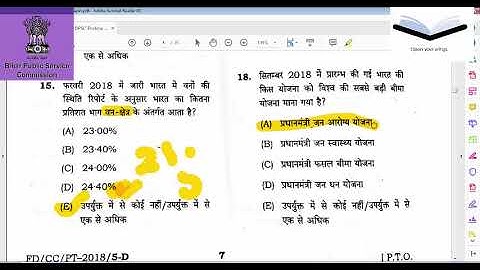 Bihar Public Service
Commission
एक से अधिक
15. फरवरी 2018 में जारी भारत में वनों की
स्थिति रिपोर्ट के अनुसार भारत का कितना
प्रतिशत भाग वन-क्षेत्र के अंतर्गत आता है?
(A) 23·00%
(B) 23·40%
(C) 24·00%
(D) 24·40%
(E) उपर्युक्त में से कोई नहीं/उपर्युक्त में से
एक से अधिक
21.
5
18. सितम्बर 2018 में प्रारम्भ की गई भारत की
किस योजना को विश्व की सबसे बड़ी बीमा
योजना माना गया है?
(A) प्रधानमंत्री जन आरोग्य योजना
(B) प्रधानमंत्री जन स्वास्थ्य योजना
(C) प्रधानमंत्री फसल बीमा योजना
(D) प्रधानमंत्री जन धन योजना
(E) उपर्युक्त में से कोई नहीं/उपर्युक्त में से
एक से अधिक
FD/CC/PT-2018/5-D
7
[ P.T.O.